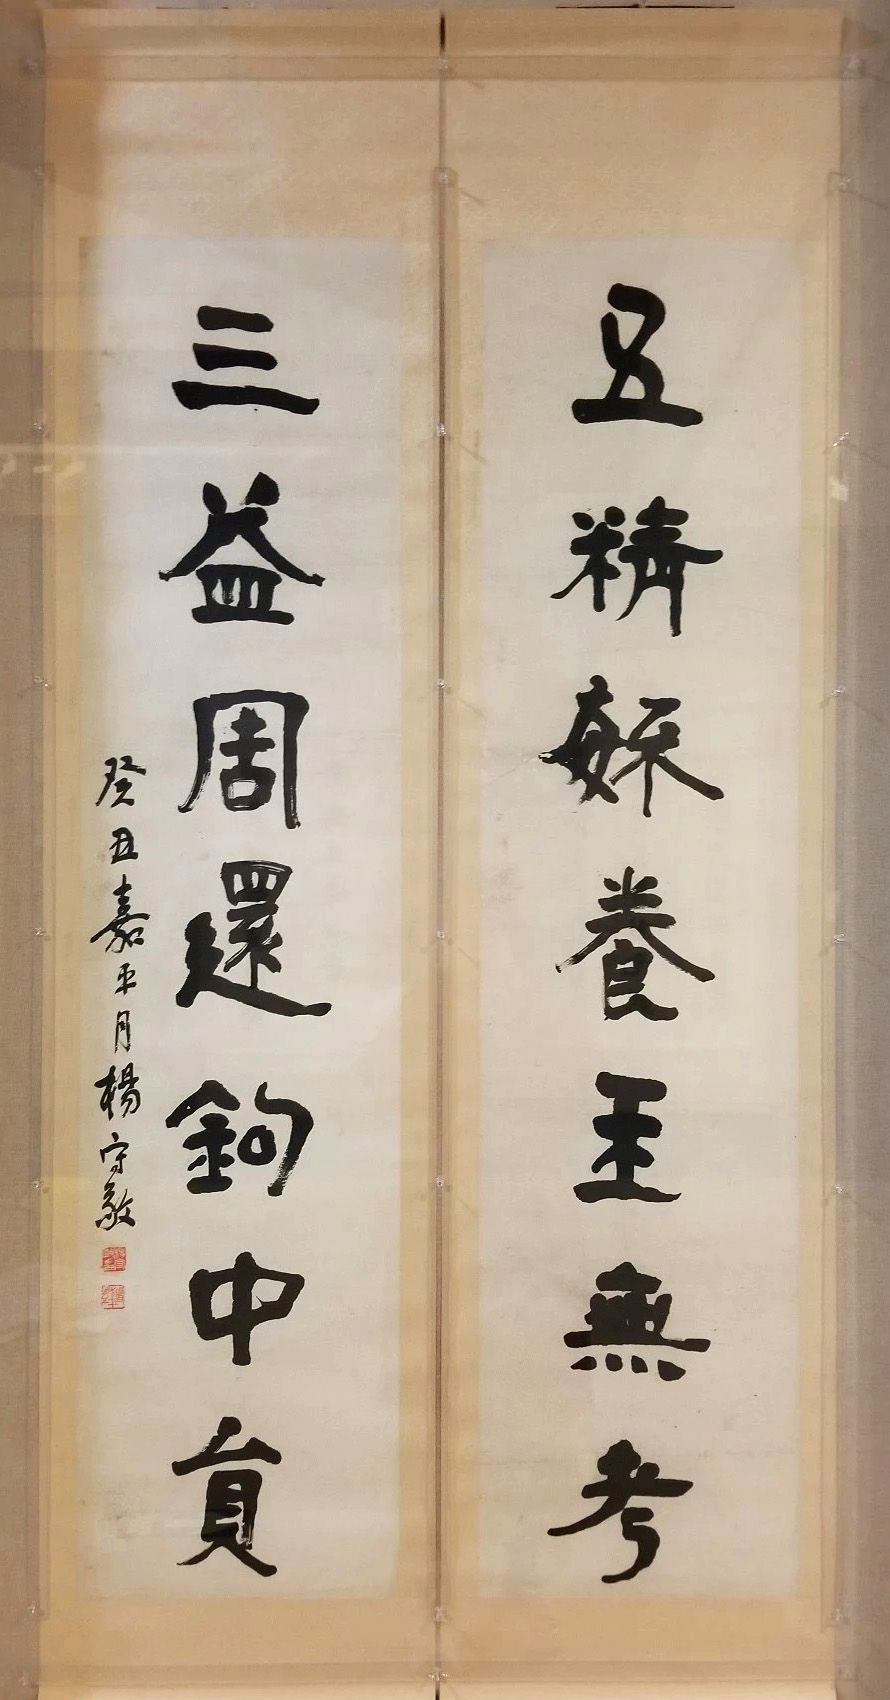 五精養玉無考
三益周還鉤中員
癸丑嘉平月楊守敬